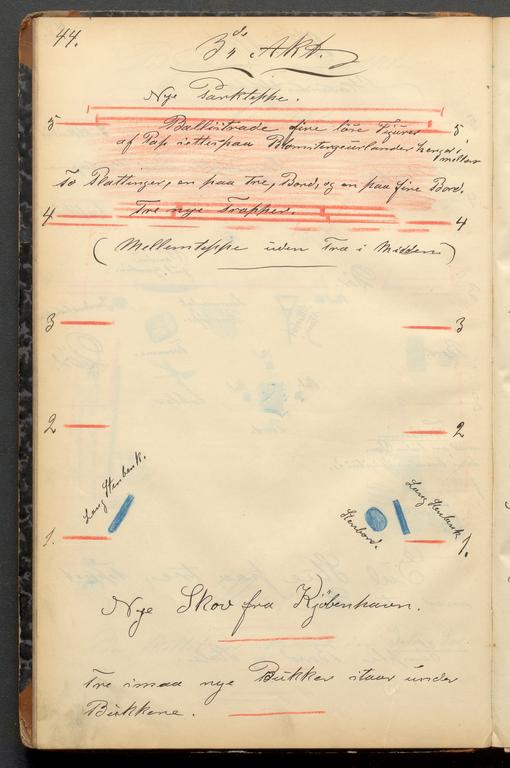 44.
3die Akt.
Nye Parkteppe.
5 Ballustrade fire löse Figurer 5
af Pap östtes paa Blomsterguirlander hengdi
mellem
To Plattinger, en paa tre, Bord, og en paa fire Bord.
4 Tre nye Trapper. 4
(Mellemteppe uden Træ i Midden)
3 3
2 2
Lang Stenbenk.
Lang Stenbenk
Stenbord.
1. 1.
Nye Skov fra Kjöbenhavn.
Tre smaa nye Bukker staar under
Bukkene.